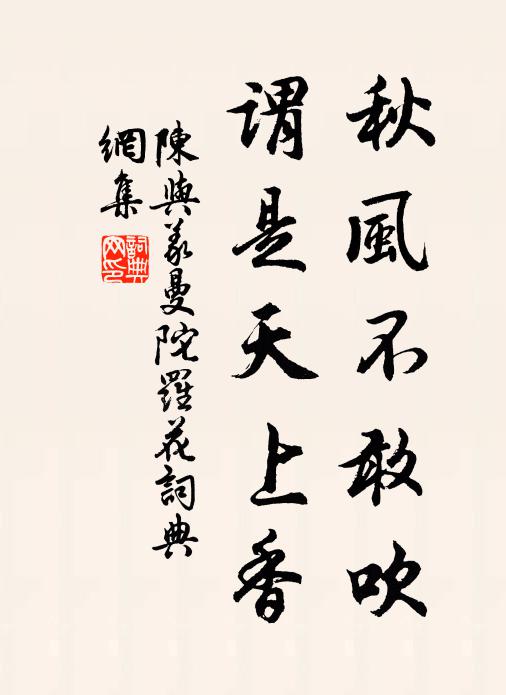 秋風不敢吹
謂是天上香
陳與義曼陀羅花詞典
網集
詞典
网印